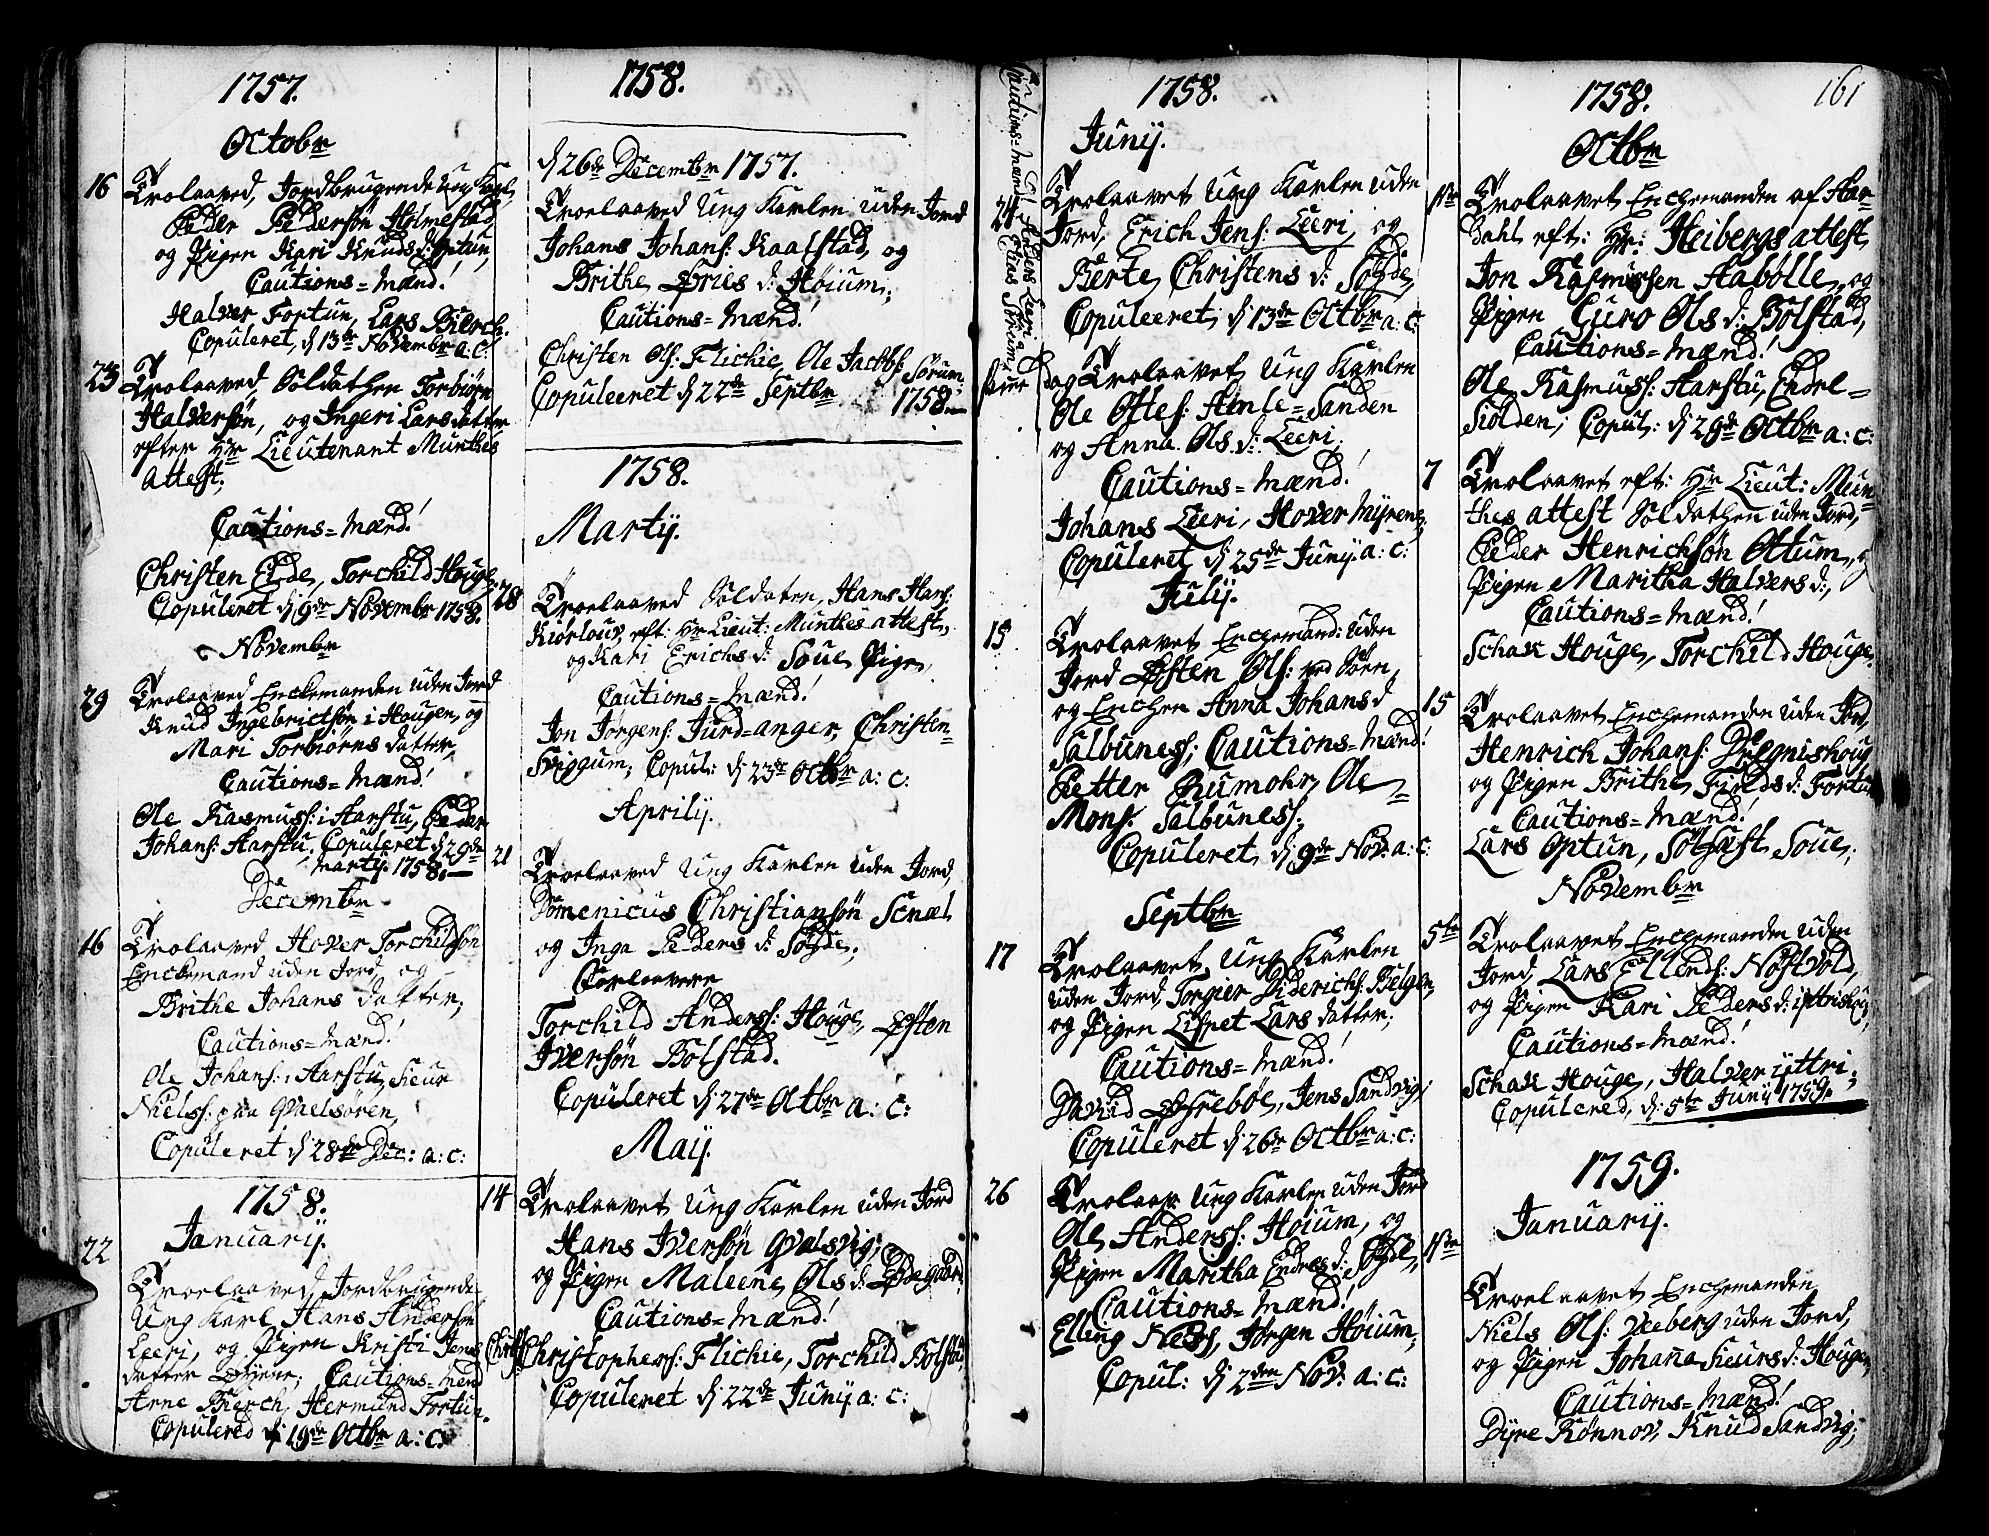 1757.
Octobr
16 Trolaaved, Jordbrugende Ung Karl,
Peder Pedersøn Holmestad
og Pigen Kari Knuds d: Optun,
Cautions=Mænd!
Halver Fortun, Lars Bierch.
Copuleret, d 13de Novembr a: c:
23 Trolaaved, Soldathen Torbiørn
Halversøn, og Ingeri Lars datter
efter Hr Lieutenant Munthes
Attest;
Cautions=Mænd!
Christen Eide, Torchild Houge,
Copuleret d: 9de Novembr 1758.
Novembr
29 Trolaaved Enckemanden uden Jord
Knud Ingebrictsøn i Hougen, og
Mari Torbiørns datter,
Cautions=Mænd!
Ole Rasmuss: i Harstu, Peder
Johans: Harstu. Copuleret d 29de
Martij. 1758.
Decembr
16 Trolaaved Hover Torchildsøn
Enckemand uden Jord, og
Brithe Johans datter,
Cautions=Mænd!
Ole Johans: i Harstu, Sieur
Nielss: paa Qvalsøren,
Copuleret d 28de Dec: a: c:
1758.
Januarij.
22 Troelaaved, Jordbrugende
Ung Karl Hans Andersøn
Leeri, og Pigen Kristi Jens
datter Cautions=Mænd
Arne Bierch, Hermund Fortun.
Copulered d 19de Octbr a: c:
1758.
d 26de Decembr 1757.
Troelaaved Ung Karlen uden Jord
Johans Johans: Kaalstad, og
Brithe Øries d: Høium;
Cautions=Mænd!
Christen Ols: Flichie, Ole Jacobs: Sørum;
Copuleeret d 22de Septbr 1758.
1758.
Martij.
28 Troelaaved Soldaten, Hans Hans:
Kiørlouv, eft: Hr Lieut: Munthes attest,
og Kari Erichs d: Soue Pige,
Cautions=Mænd!
Jon Jørgens: Jurd=anger, Christen
Sviggum; Copul: d: 23de Octbr a: c:
Aprilij.
21 Troelaaved Ung Karlen uden Jord,
Domenicus Christiansøn Scnæl
og Inga Peders d: Søyde;
Forlovere
Torchild Anderss: Houge, Østen
Iversøn Bolstad.
Copuleret d: 27de Octbr a: c:
Maij.
14 Trolaavet Ung Karlen uden Jord
Hans Iversøn Qvalsvig;
og Pigen Maleene Ols d: Ødegaard
Cautions=Mænd!
Christophers: Flichie, Torchild Bolstad
Copuleret d: 22de Junij a: c:
Cautions=Mænd
Anders Leeri
Elias Sørum
1758.
Junij.
24 Trolaavet Ung Karlen uden
Jord, Erich Jens: Leeri, og
Berte Christens d: Søyde,
Copuleeret, d: 13de Octbr a: c:
samme dag Trolaavet Ung Karlen
Ole Ottes: Hmle=Sanden
og Anna Ols d: Leeri,
Cautions=Mænd!
Johans Leeri, Hover Myrene;
Copuleret, d: 25de Junij a: c:
Julij.
15 Trolaavet Enchemand: uden
Jord Østen Ols: ved Søen,
og Enchen Anna Johans d
Salbuness; Cautions=Mænd!
Petter Rumohr, Ole
Mons: Salbuness;
Copuleret, d: 9de Nov: a: c:
Septbr
17 Trolaavet, Ung Karlen
uden Jord, Torgier Diderichs: Belgen,
og Pigen Lispet Lars datter;
Cautions=Mænd!
David Øfrebøe, Jens Sandvig;
Copuleret d: 26de Octbr a: c:
26 Trolaav Ung Karlen uden Jord
Ole Anderss: Høium, og
Pigen Maritha Endres d: Søyde,
Cautions=Mænd!
Elling Næss, Jørgen Høium;
Copul: d: 2den Nov: a: c:
161
1758.
Octbr
1ste Trolaavet Enchemanden af Aar-
dahl eft: Hr: Heibergs attest
Jon Rasmussen Aabølle, og
Pigen Guro Ols d: Bolstad,
Cautions=Mænd!
Ole Rasmuss: Harstu, Endel=
Siolden; Copul: d: 29de Octbr a: c:
7 Trolaavet eft: Hr Lieut: Mun=
thes attest Soldathen uden Jord,
Peder Henrichsøn Ottum, og
Pigen Maritha Halvers d:,
Cautions=Mænd!
Schak Houge, Torchild Houge.
15 Trolaavet Enchemanden uden Jord,
Henrich Johans: Drægnishoug
og Pigen Brithe Fields d: Fortun
Cautions=Mænd!
Lars Optun, Solfæst Soue;
Novembr
5te Trolaavet Enchemanden uden
Jord, Lars Ellends: Nøstvold,
og Pigen Kari Peders d:
Cautions=Mænd!
Schak Houge, Halver ÿttri;
Copulered, d: 5te Junij 1759.
1759.
Januarij.
1ste Troelaavet Enchemanden
Niels Ols: Veeberg uden Jord,
og Pigen Johana Sieurs d: Hougen,
Cautions=Mænd!
Dyre Rønnov, Knud Sandvig;